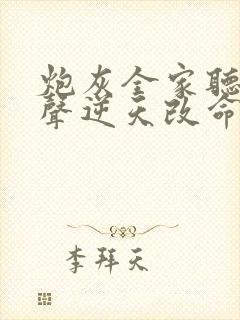 炮灰全家聽
聲逆天改命
李拜天